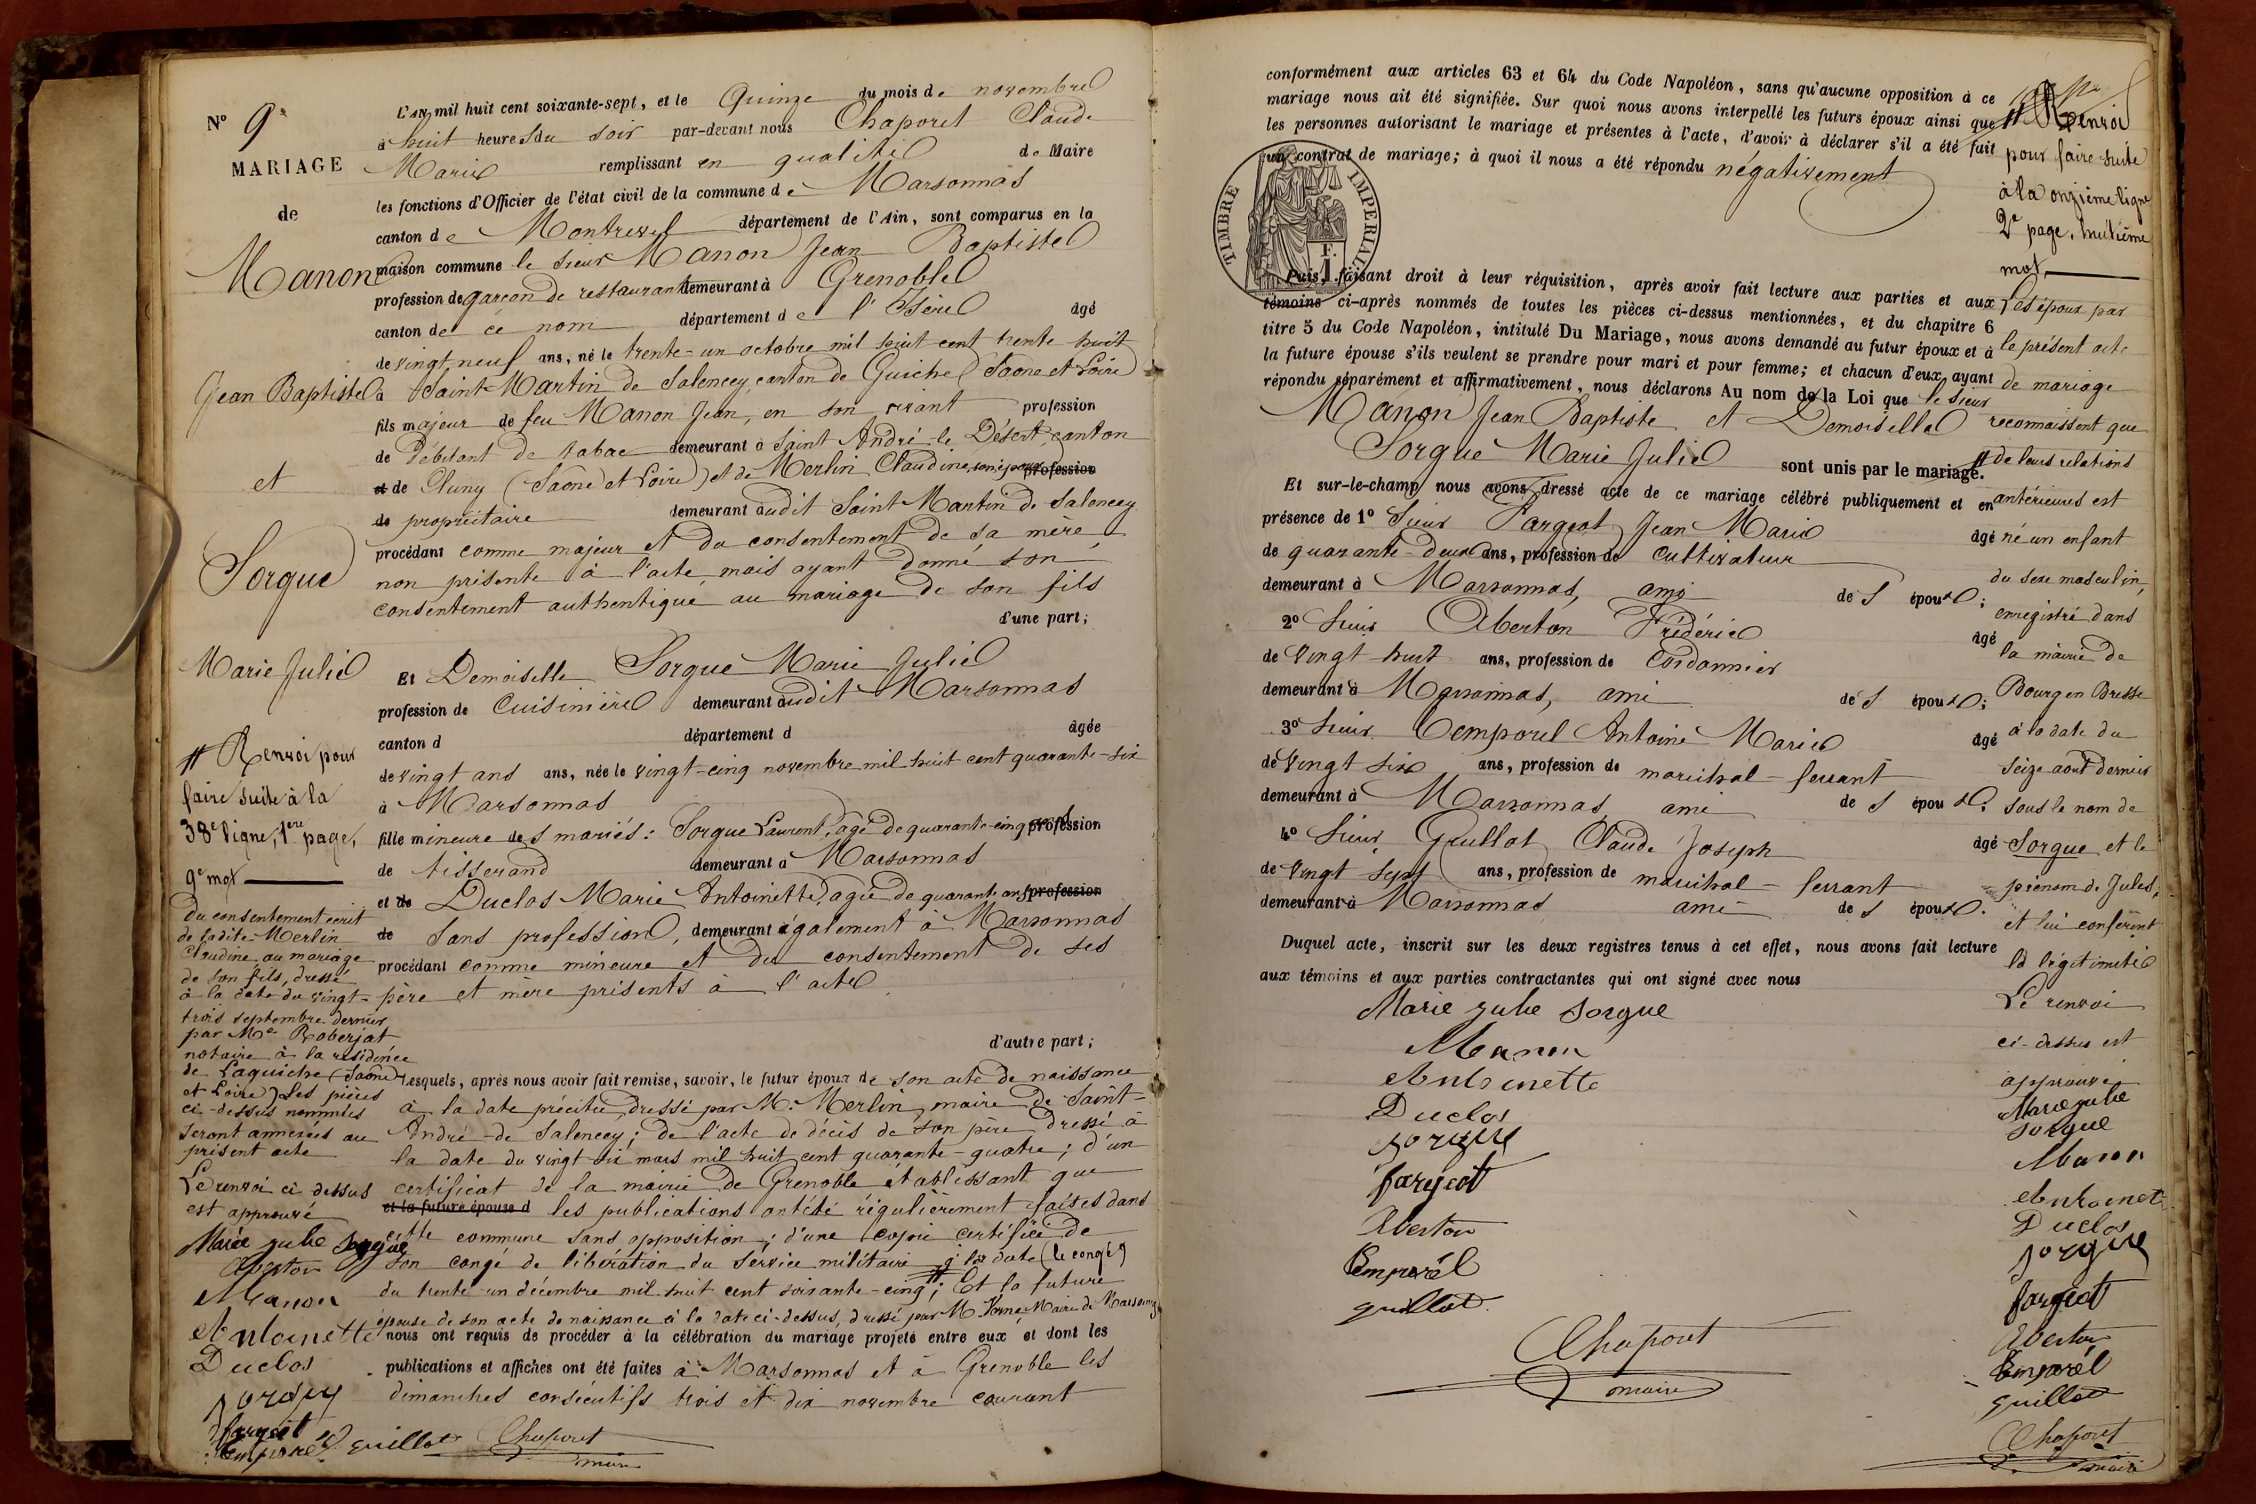 N° 9e
MARIAGE
de
Manon
Jean Baptiste
et
Sorgue
Marie Julie
# Renvoi pour
faire suite à la
38e ligne, 1ere page,
9e mot
Du consentement écrit
de ladite Merlin
Claudine au mariage
de son fils, dressé
à la date du vingt-
trois septembre dernier
par Me Roberjat
notaire à la résidence
de Laguiche (Saône
et Loire) Les pièces
ci-dessus nommées
seront annexées au
présent acte
Le renvoi ci dessus
est approuvé
Marie julie Sorgue
Aberton
Manon
Antoinette
Duclos
Sorgue
fargeot
Emporel guillot Chaporet
maire
L'AN mil huit cent soixante-sept, et le Quinze du mois de novembre
à huit heures du soir par-devant nous Chaporet Claude
Marie remplissant en qualité de Maire
les fonctions d'Officier de l'état civil de la commune de Marsonnas
canton de Montrevel département de l'Ain, sont comparus en la
maison commune le sieur Manon Jean Baptiste
profession de garçon de restaurant demeurant à Grenoble
canton de ce nom département de l'Isère âgé
de vingt neuf ans, né le trente-un octobre mil huit cent trente huit
à Saint-Martin de Salencey, canton de Guiche (Saône et Loire)
fils majeur de feu Manon Jean, en son vivant profession
de Débitant de tabac demeurant à Saint André-le Désert, canton
et de Cluny (Saône et Loire) et de Merlin Claudine, son épouse profession
de propriétaire demeurant audit Saint Martin de Salencey
procédant comme majeur et du consentement de sa mère,
non présente à l'acte mais ayant donné son
consentement authentique au mariage de son fils
d'une part;
Et Demoiselle Sorgue Marie Julie
profession de Cuisinière demeurant audit Marsonnas
canton d département d âgée
de vingt ans ans, née le vingt-cinq novembre mil huit cent quarante-six
à Marsonnas
fille mineure des mariés: Sorgue Laurent, âgé de quarante-cinq ans profession
de tisserand demeurant à Marsonnas
et de Duclos Marie Antoinette, agée de quarante ans profession
de Sans profession, demeurant également à Marsonnas
procédant comme mineure et du consentement de ses
père et mère présents à l'acte
d'autre part;
Lesquels, après nous avoir fait remise, savoir, le futur époux de son acte de naissance
à la date précitée, dressé par M. Merlin, maire de Saint-
André-de Salencey; de l'acte de décès de son père dressé à
la date du vingt-six mars mil huit cent quarante-quatre; d'un
certificat de la mairie de Grenoble établissant que
et la future épouse d les publications ont été régulièrement faites dans
cette commune sans opposition; d'une copie certifiée de
son congé de libération du service militaire à la date (le congé)
du trente-un décembre mil huit cent soixante-cinq; # Et la future
épouse de son acte de naissance à la date ci-dessus, dressé par M. Kerne, Maire de Marsonnas
nous ont requis de procéder à la célébration du mariage projeté entre eux et dont les
publications et affiches ont été faites à Marsonnas et à Grenoble les
dimanches consécutifs trois et dix novembre courant
conformément aux articles 63 et 64 du Code Napoléon, sans qu'aucune opposition à ce
mariage nous ait été signifiée. Sur quoi nous avons interpellé les futurs époux ainsi que
les personnes autorisant le mariage et présentes à l'acte, d'avoir à déclarer s'il a été fait
un contrat de mariage; à quoi il nous a été répondu négativement
TIMBRE IMPERIAL
1 F.
Puis, faisant droit à leur réquisition, après avoir fait lecture aux parties et aux
témoins ci-après nommés de toutes les pièces ci-dessus mentionnées, et du chapitre 6
titre 5 du Code Napoléon, intitulé Du Mariage, nous avons demandé au futur époux et à
la future épouse s'ils veulent se prendre pour mari et pour femme; et chacun d'eux ayant
répondu séparément et affirmativement, nous déclarons Au nom de la Loi que le Sieur
Manon Jean Baptiste et Demoiselle
Sorgue Marie Julie sont unis par le mariage. #
Et sur-le-champ nous avons dressé acte de ce mariage célébré publiquement et en
présence de 1° Sieur Fargeot Jean Marie âgé
de quarante-deux ans, profession de cultivateur
demeurant à Marsonnas, ami des époux;
2° Sieur Aberton Frédéric âgé
de vingt-huit ans, profession de Cordonnier
demeurant à Marsonnas, ami des époux;
3° Sieur Temporel Antoine Marie âgé
de vingt six ans, profession de maréchal-ferrant
demeurant à Marsonnas ami des époux;
4° Sieur Guillot Claude Joseph âgé
de vingt sept ans, profession de maréchal-ferrant
demeurant à Marsonnas ami des époux.
Duquel acte, inscrit sur les deux registres tenus à cet effet, nous avons fait lecture
aux témoins et aux parties contractantes qui ont signé avec nous
Marie julie Sorgue
Manon
Antoinette
Duclos
Sorgue
fargeot
Aberton
Emporél
guillot
Chaporet
maire
# Renvoi
pour faire suite
à la onzième ligne
2e page, huitième
mot
Les époux par
le présent acte
de mariage
reconnaissent que
de leurs relations
antérieures est
né un enfant
du sexe masculin,
enregistré dans
la mairie de
Bourg en Bresse
à la date du
seize août dernier
sous le nom de
Sorgue et le
prénom de Jules,
et lui confèrent
la légitimité
Le renvoi
ci-dessus est
approuvé
Marie julie
Sorgue
Manon
Antoinet
Duclos
Sorgue
fargeot
Aberton
Emporél
guillot
Chaporet
maire